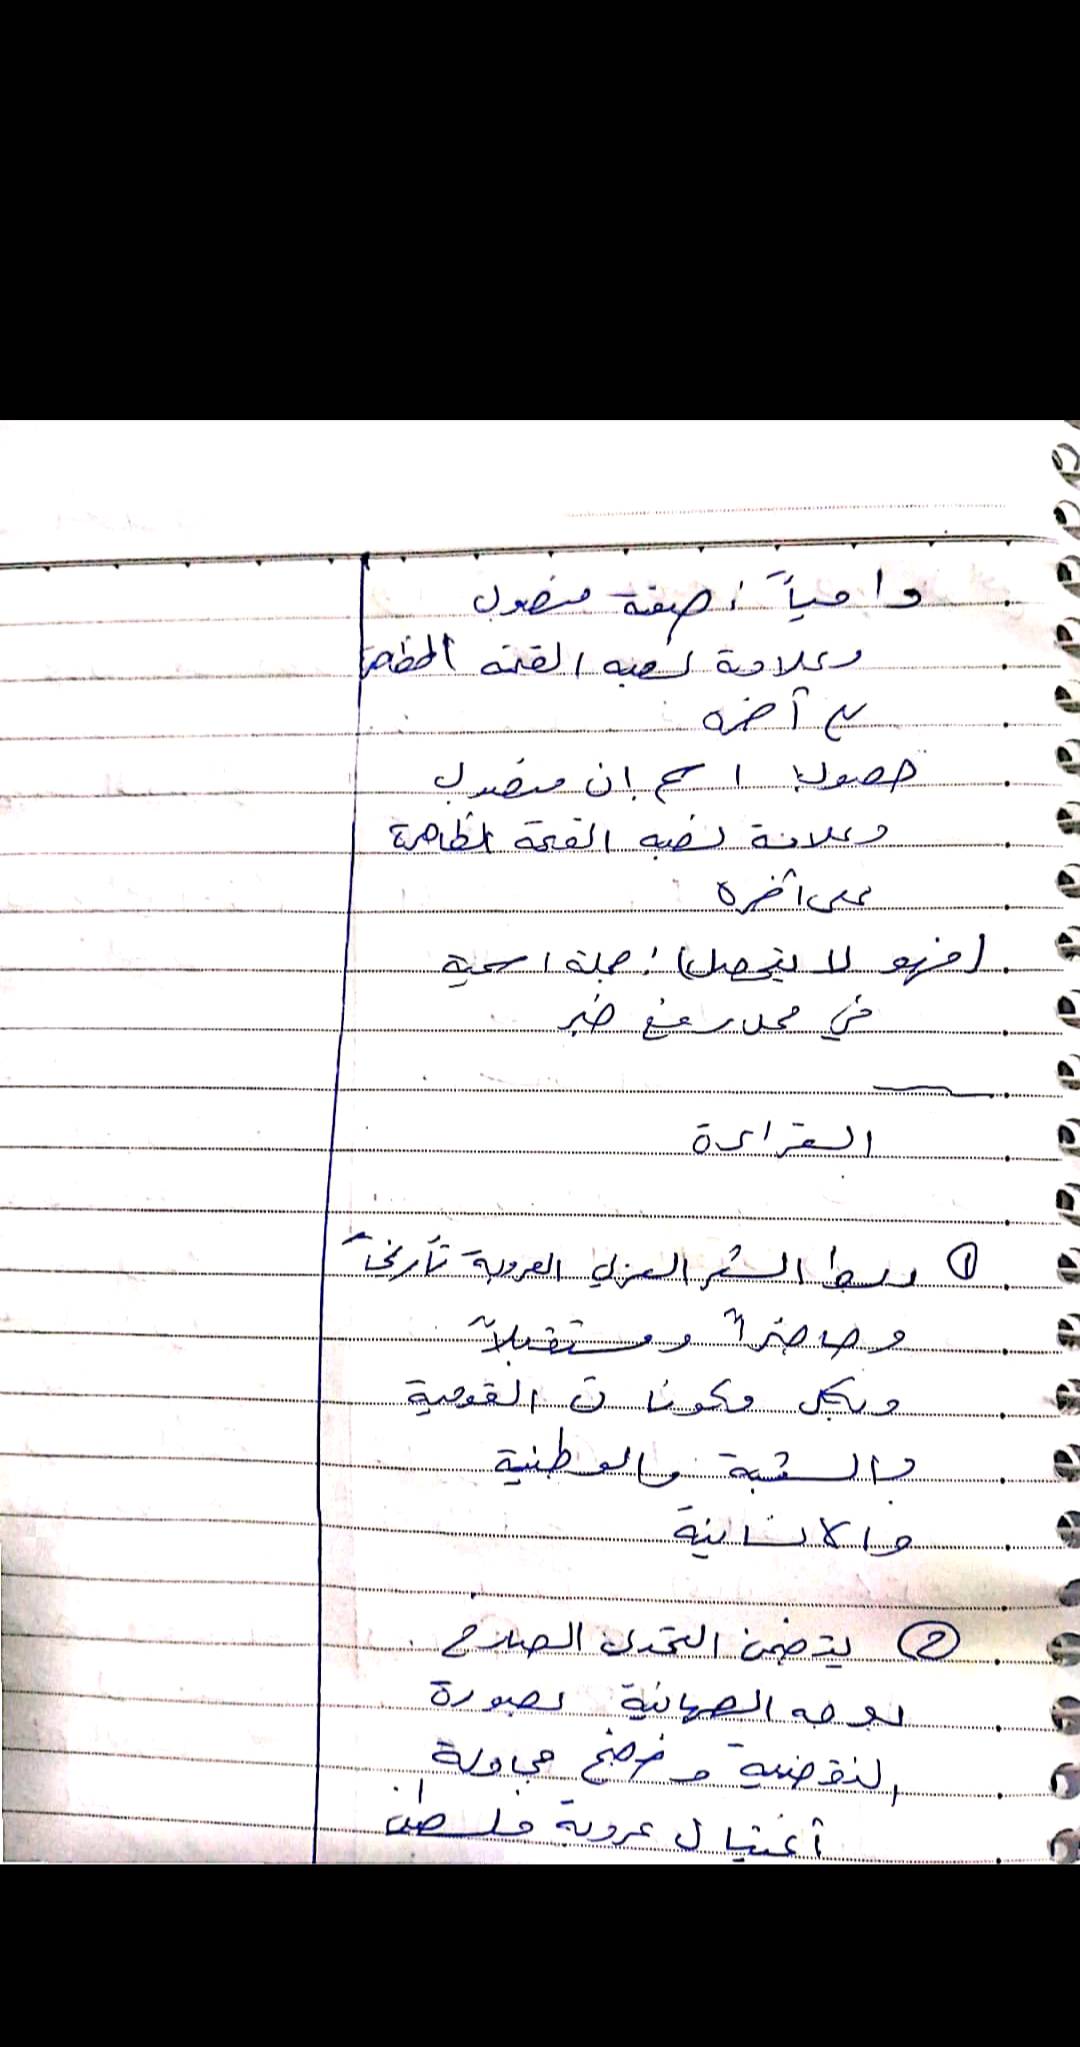 دامياً : صفة منصوب
وعلامة نصبه الفتحة الظاهرة
على آخره
حصول: اسم إن منصوب
وعلامة نصبه الفتحة الظاهرة
على آخره
(فهو لا يحصل) : جملة اسمية
في محل رفع خبر
القراءة
① ربط الشعر العربي العروبة تأريخاً
وحاضراً ومستقبلاً
وبكل مكونات القومية
والوطنية
والانسانية
② يتضمن التحدي الصارخ
بوجه الصهاينة بصورة
محاولة
أغتيال عروبة فلسطين